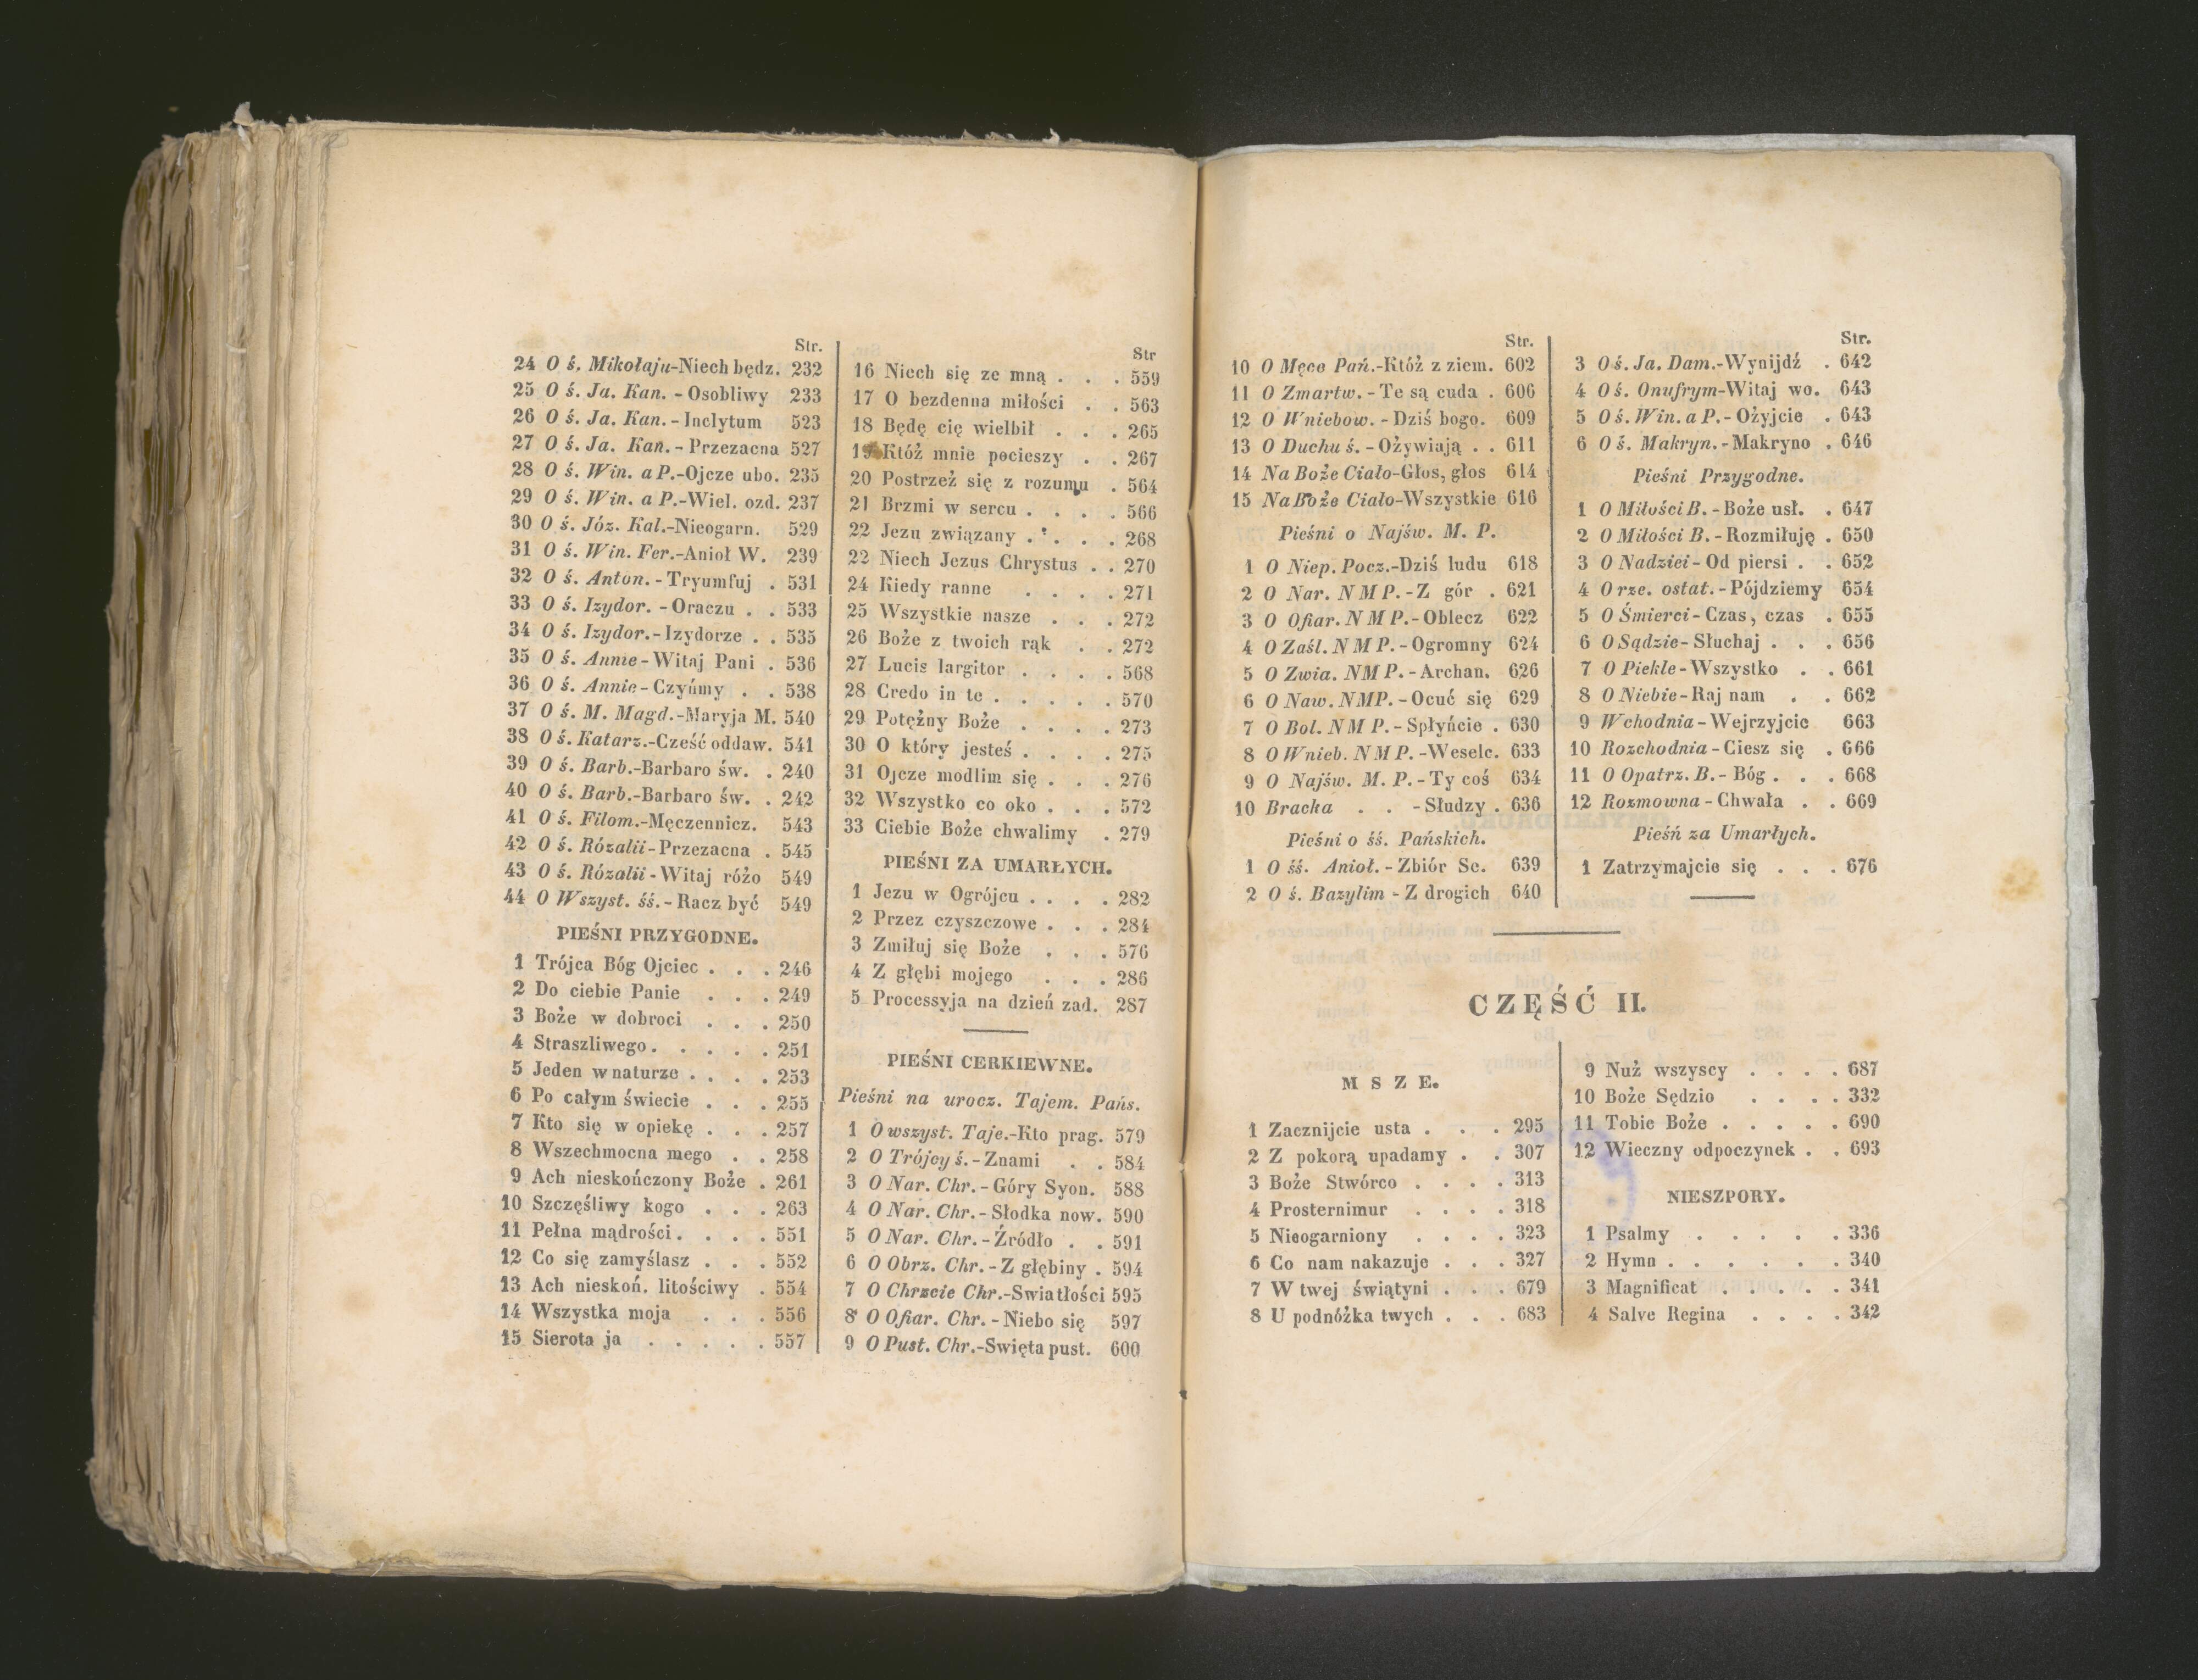 Str.
24 O ś. Mikołaju-Niech będz. 232
25 O ś. Ja. Kan. - Osobliwy 233
26 O ś. Ja. Kan. - Inclytum 523
27 O ś. Ja. Kan. - Przezacna 527
28 O ś. Win. a P.-Ojcze ubo. 235
29 O ś. Win. a P.-Wiel. ozd. 237
30 O ś. Józ. Kal.-Nieogarn. 529
31 O ś. Win. Fer.-Anioł W. 239
32 O ś. Anton. - Tryumfuj . 531
33 O ś. Izydor. - Oraczu . . 533
34 O ś. Izydor. - Izydorze . . 535
35 O ś. Annie - Witaj Pani . 536
36 O ś. Annie - Czyńmy . . 538
37 O ś. M. Magd.-Maryja M. 540
38 O ś. Katarz.-Cześć oddaw. 541
39 O ś. Barb.-Barbaro św. . 240
40 O ś. Barb.-Barbaro św. . 242
41 O ś. Filom.-Męczennicz. 543
42 O ś. Rózalii - Przezacna . 545
43 O ś. Rózalii - Witaj różo 549
44 O Wszyst. śś. - Racz być 549
PIEŚNI PRZYGODNE.
1 Trójca Bóg Ojciec . . . 246
2 Do ciebie Panie . . . 249
3 Boże w dobroci . . . 250
4 Straszliwego . . . . . 251
5 Jeden w naturze . . . . 253
6 Po całym świecie . . . 255
7 Kto się w opiekę . . . 257
8 Wszechmocna mego . . 258
9 Ach nieskończony Boże . 261
10 Szczęśliwy kogo . . . 263
11 Pełna mądrości . . . . 551
12 Co się zamyślasz . . . 552
13 Ach nieskoń. litościwy . 554
14 Wszystka moja . . . 556
15 Sierota ja . . . . . 557
Str
16 Niech się ze mną . . . 559
17 O bezdenna miłości . . 563
18 Będę cię wielbił . . . 265
19 Któż mnie pocieszy . . 267
20 Postrzeż się z rozumu . 564
21 Brzmi w sercu . . . . 566
22 Jezu związany . . . . 268
22 Niech Jezus Chrystus . . 270
24 Kiedy ranne . . . . 271
25 Wszystkie nasze . . . 272
26 Boże z twoich rąk . . 272
27 Lucis largitor . . . . 568
28 Credo in te . . . . . 570
29 Potężny Boże . . . . 273
30 O który jesteś . . . . 275
31 Ojcze modlim się . . . 276
32 Wszystko co oko . . . 572
33 Ciebie Boże chwalimy . 279
PIEŚNI ZA UMARŁYCH.
1 Jezu w Ogrójcu . . . . 282
2 Przez czyszczowe . . . 284
3 Zmiłuj się Boże . . . 576
4 Z głębi mojego . . . 286
5 Processyja na dzień zad. 287
PIEŚNI CERKIEWNE.
Pieśni na urocz. Tajem. Pańs.
1 O wszyst. Taje.-Kto prag. 579
2 O Trójcy ś. - Znami . . 584
3 O Nar. Chr. - Góry Syon. 588
4 O Nar. Chr. - Słodka now. 590
5 O Nar. Chr. - Źródło . . 591
6 O Obrz. Chr. - Z głębiny . 594
7 O Chrzcie Chr.-Swiatłości 595
8 O Ofiar. Chr. - Niebo się 597
9 O Pust. Chr.-Swięta pust. 600
Str.
10 O Męce Pań.-Któż z ziem. 602
11 O Zmartw. - Te są cuda . 606
12 O Wniebow. - Dziś bogo. 609
13 O Duchu ś. - Ożywiają . . 611
14 Na Boże Ciało-Głos, głos 614
15 Na Boże Ciało-Wszystkie 616
Pieśni o Najśw. M. P.
1 O Niep. Pocz.-Dziś ludu 618
2 O Nar. N M P. - Z gór . 621
3 O Ofiar. N M P. - Oblecz 622
4 O Zaśl. N M P. - Ogromny 624
5 O Zwia. NM P. - Archan. 626
6 O Naw. NMP. - Ocuć się 629
7 O Bol. N M P. - Spłyńcie . 630
8 O Wnieb. N M P. -Weselc. 633
9 O Najśw. M. P. - Ty coś 634
10 Bracka . . - Słudzy . 636
Pieśni o śś. Pańskich.
1 O śś. Anioł. - Zbiór Se. 639
2 O ś. Bazylim - Z drogich 640
Str.
3 O ś. Ja. Dam.-Wynijdź . 642
4 O ś. Onufrym-Witaj wo. 643
5 O ś. Win. a P. - Ożyjcie . 643
6 O ś. Makryn. - Makryno . 646
Pieśni Przygodne.
1 O Miłości B. - Boże usł. . 647
2 O Miłości B. - Rozmiłuję . 650
3 O Nadziei - Od piersi . . 652
4 O rze. ostat. - Pójdziemy 654
5 O Śmierci - Czas, czas . 655
6 O Sądzie - Słuchaj . . . 656
7 O Piekle - Wszystko . . 661
8 O Niebie - Raj nam . . 662
9 Wchodnia - Wejrzyjcie 663
10 Rozchodnia - Ciesz się . 666
11 O Opatrz. B. - Bóg . . . 668
12 Rozmowna - Chwała . . 669
Pieśń za Umarłych.
1 Zatrzymajcie się . . . 676
CZĘŚĆ II.
M S Z E.
1 Zacznijcie usta . . . 295
2 Z pokorą upadamy . . 307
3 Boże Stwórco . . . . 313
4 Prosternimur . . . . 318
5 Nieogarniony . . . . 323
6 Co nam nakazuje . . . 327
7 W twej świątyni . . . 679
8 U podnóżka twych . . . 683
9 Nuż wszyscy . . . . 687
10 Boże Sędzio . . . . 332
11 Tobie Boże . . . . . 690
12 Wieczny odpoczynek . . 693
NIESZPORY.
1 Psalmy . . . . . 336
2 Hymn . . . . . . 340
3 Magnificat . . . . . 341
4 Salve Regina . . . . 342